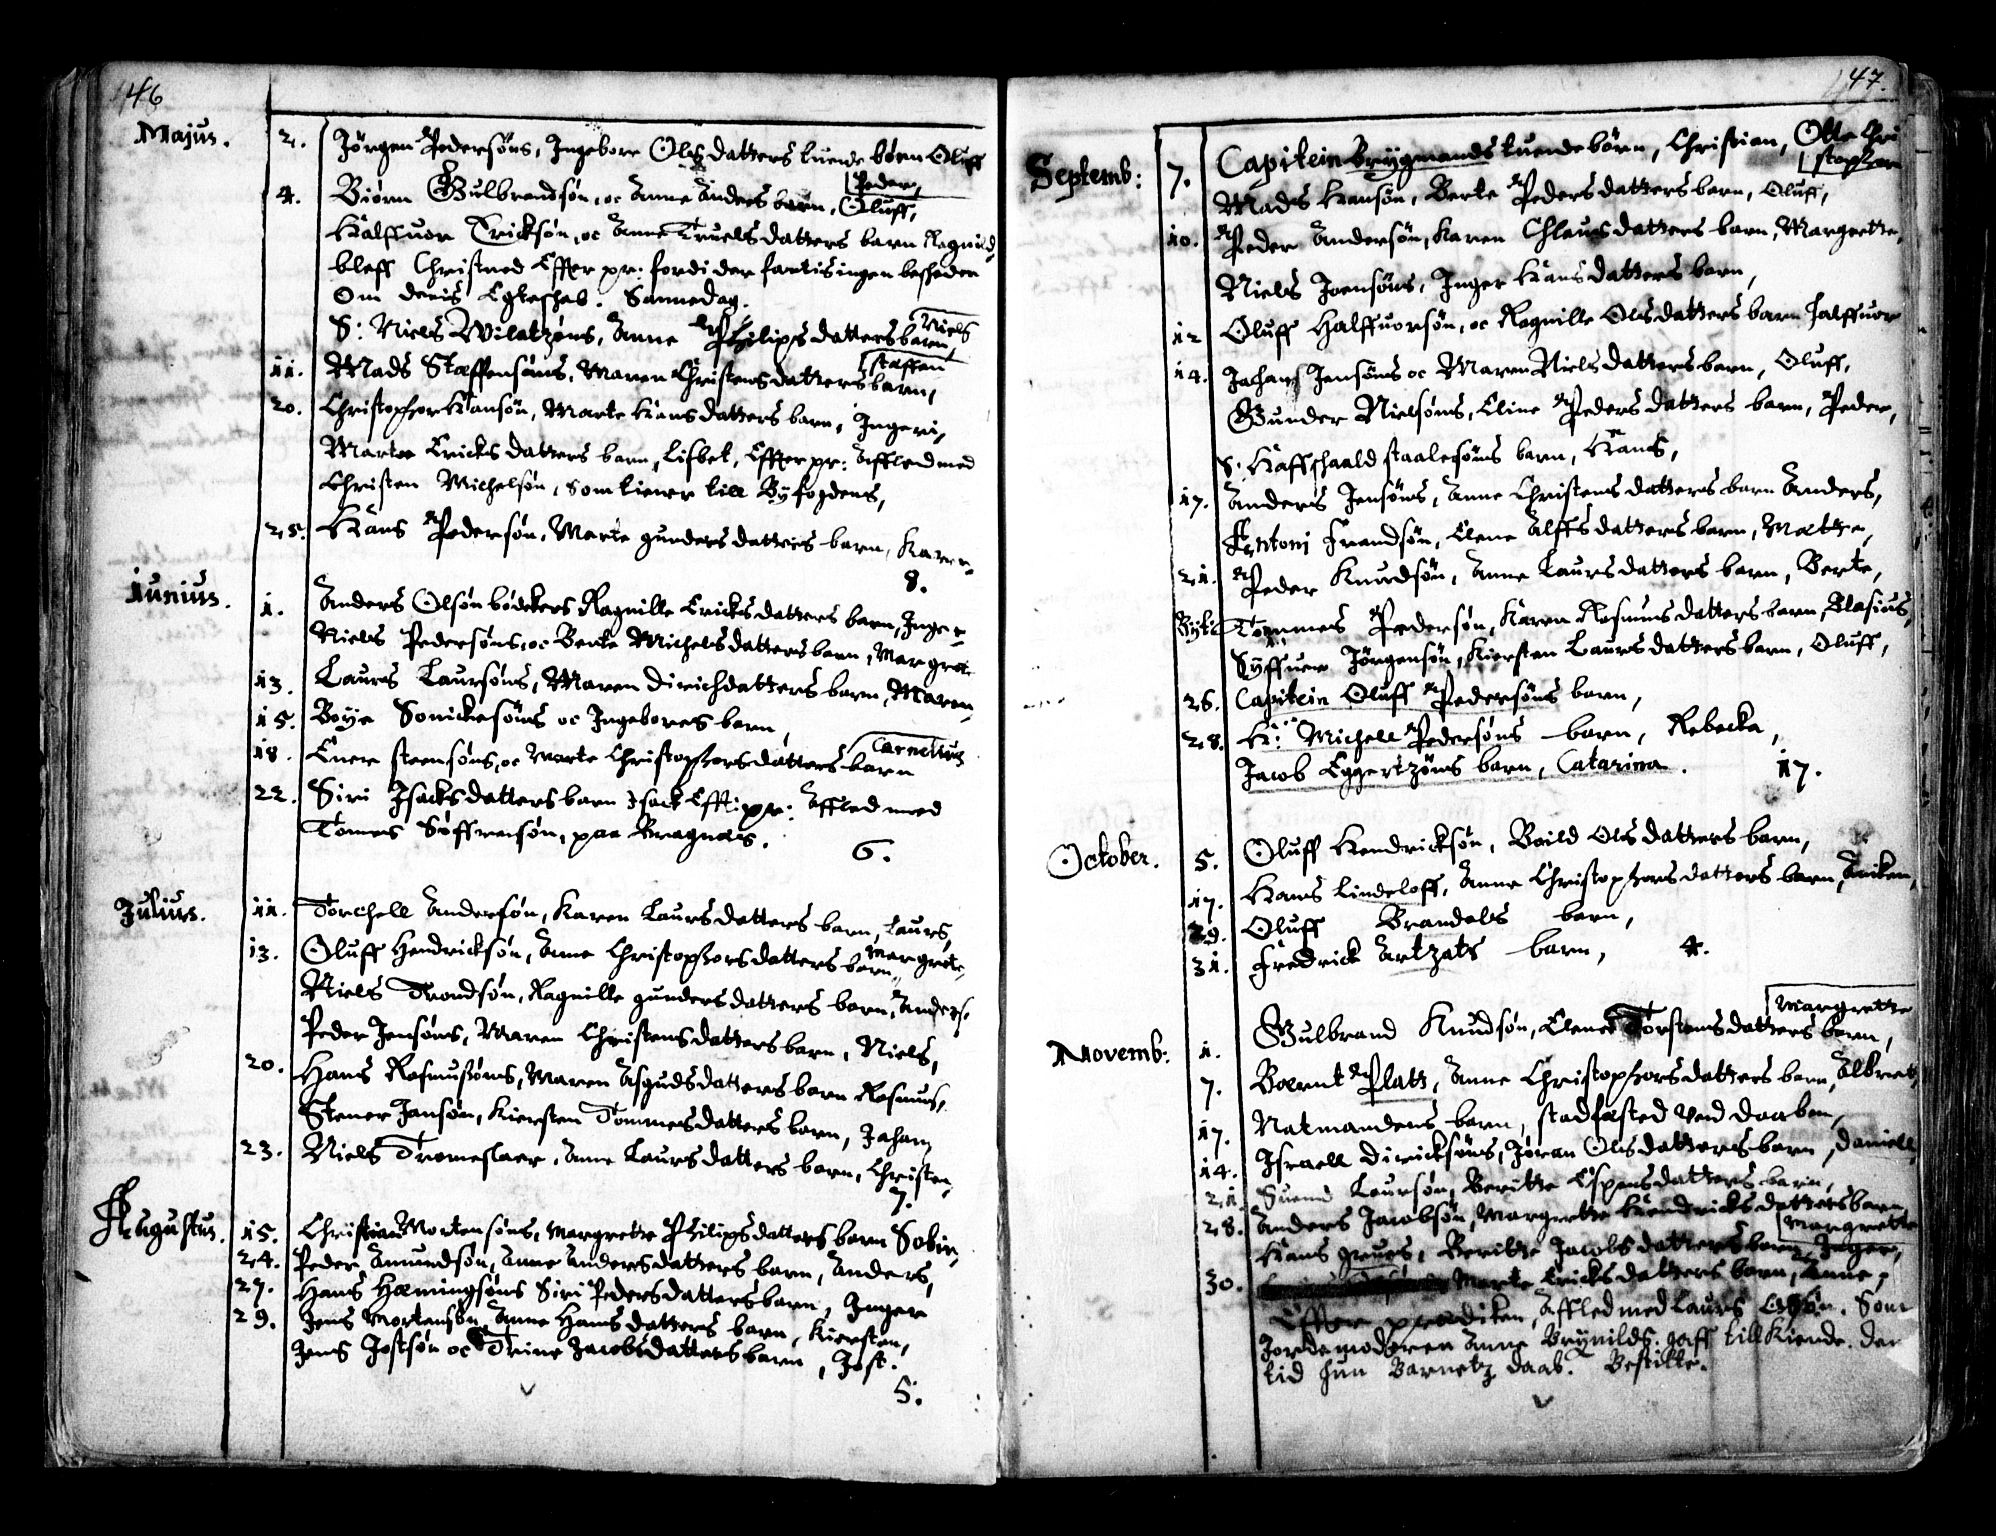 46
Majus.
2. Jörgen Pedersöns, Ingebore Olsdatters tuende börn Oluff
Peder,
4. Biörn Gulbrandsön, oc Anne Anders barn, Oluff,
Halffuor Ericksön, oc Anne Truelsdatters barn Ragnild
bleff Christned Effter pr: fordi der fantis ingen beskeden
Om deris Egteskab. Sannedag.
Niels
S: Niels Wilatzöns, Anne Philipsdatters barn,
Staffen
11. Mads Staffensöns, Maren Christensdatters barn,
20. Christopher Hansön, Marte Hansdatters barn, Ingeri,
Marte Ericksdatters barn, Lisbet, Effter pr: Affled med
Christen Michelsön, som tiener till Byfogdens,
25. Hans Pedersön, Marte gundersdatters barn, Karen
8.
Iunius.
1. Anders Olsön bödekers Ragnille Ericksdatters barn, Inger
Niels Pedersöns, oc Berte Michelsdatters barn, Margrete
13. Laurs Laursöns, Maren Dirichdatters barn, Maren
15. Boye Sönickesöns oc Ingebores barn,
Carnelius
18. Ener steensöns, oc Marte Christophersdatters barn
22. Siri Isacksdatters barn Isack Efft: pr: Affled med
Tomes Söffrensön, paa Bragnæs.
6.
Julius.
11. Torchell Andersön, Karen Laursdatters barn, Laurs,
Margrete
13. Oluff Hendricksön, Anne Christophersdatters barn,
Niels Trondsön, Ragnille gundersdatters barn, Anders,
Peder Jensöns, Maren Christensdatters barn, Niels,
20. Hans Rasmusöns, Maren Asgudsdatters barn Rasmus,
Stener Jansön, Kiersten Tommesdatters barn, Johan,
23. Niels Tromeslaer, Anne Laursdatters barn, Christen,
7.
Augustus.
15. Christian Mortensöns, Margrete Philipsdatters barn
24. Peder Amundsön, Anne Andersdatters barn, Anders,
27. Hans Hæmingsöns Siri Pedersdatters barn, Inger
29. Jens Mortensön Anne Hansdatters barn, Kiersten,
Jens Jostsön oc Trine Jacobsdatters barn, Jost.
5.
47.
Septemb:
7. Capitein Brygmands tuende börn, Christian, Otte Chri
stopher
Mads Hansön, Berte Pedersdatters barn, Oluff,
10. Peder Andersön, Karen Chlausdatters barn, Margrette,
Niels Joensöns, Inger Hansdatters barn,
12 Oluff Halffuorsön, oc Ragnille Olsdatters barn Halffuor
14. Johans Jensöns oc Maren Nielsdatters barn, Oluff,
Gunder Nielsöns, Eline Pedersdatters barn, Peder,
S: staalesöns barn, Hans,
17. Anders Jensöns, Anne Christensdatters barn Anders,
Antoni Frandsön, Elene Alffsdatters barn, Mætte,
21. Peder Knudsön, Anne Laursdatters barn, Berte,
Tommes Pedersön, Karen Rasmusdatters barn, Blasius,
Syffuer Jörgensön, Kiersten Laursdatters barn, Oluff,
26. Capitein Oluff Pedersöns barn,
28. H: Michell Pedersöns barn, Rebecka,
Jacob Eggertzöns barn, Catarina.
17.
October.
5. Oluff Hendricksön, Boild Olsdatters barn,
17. Hans Lindeloff, Anne Christophersdatters barn, Aniken,
29. Oluff Brandals barn,
31. Fredrick Artzats barn,
4.
Novemb:
Margrette
1. Gulbrand Knudsön, Elene Torstensdatters barn,
7. Bærnt Platt, Anne Christophersdatters barn, Albret,
17. Natmandens barn, stadfæsted ved daaben,
14. Israell Diricksöns, Jöran Olsdatters barn, Daniell,
21 Suend Laursön, Beritte Espensdatters barn,
28. Anders Jacobsön, Margrette Hendricksdatters barn
Margrette
Hans, Beritte Jacobsdatters barn, Inger,
30. Marte Ericksdatters barn, Anne,
Effter prediken, Affled med Laurs Olsön. Som
Jordemoderen Anne Brynilds: gaff till Kiende. der
tid hun Barnetz daab. Bestilte.